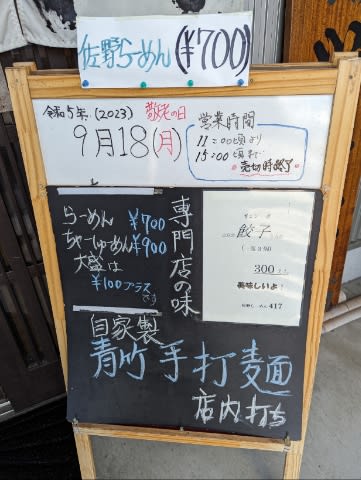 佐野らーめん(¥700)
令和5年(2023) 敬老の日
9月18(月)
営業時間
11:00頃より
15:00頃まで
売切時終了
らーめん ¥700
ちゃーしゅーめん ¥900
大盛は
¥100プラスです
専門店の味
餃子
300
美味しいよ!
417
自家製
青竹手打麺
店内打ち